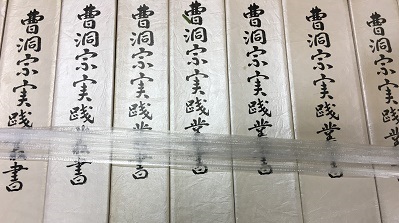 曹洞宗実践叢書
曹洞宗実践叢書
曹洞宗実践叢書
曹洞宗実践叢書
曹洞宗実践叢書
曹洞宗実践叢書
曹洞宗実践叢書